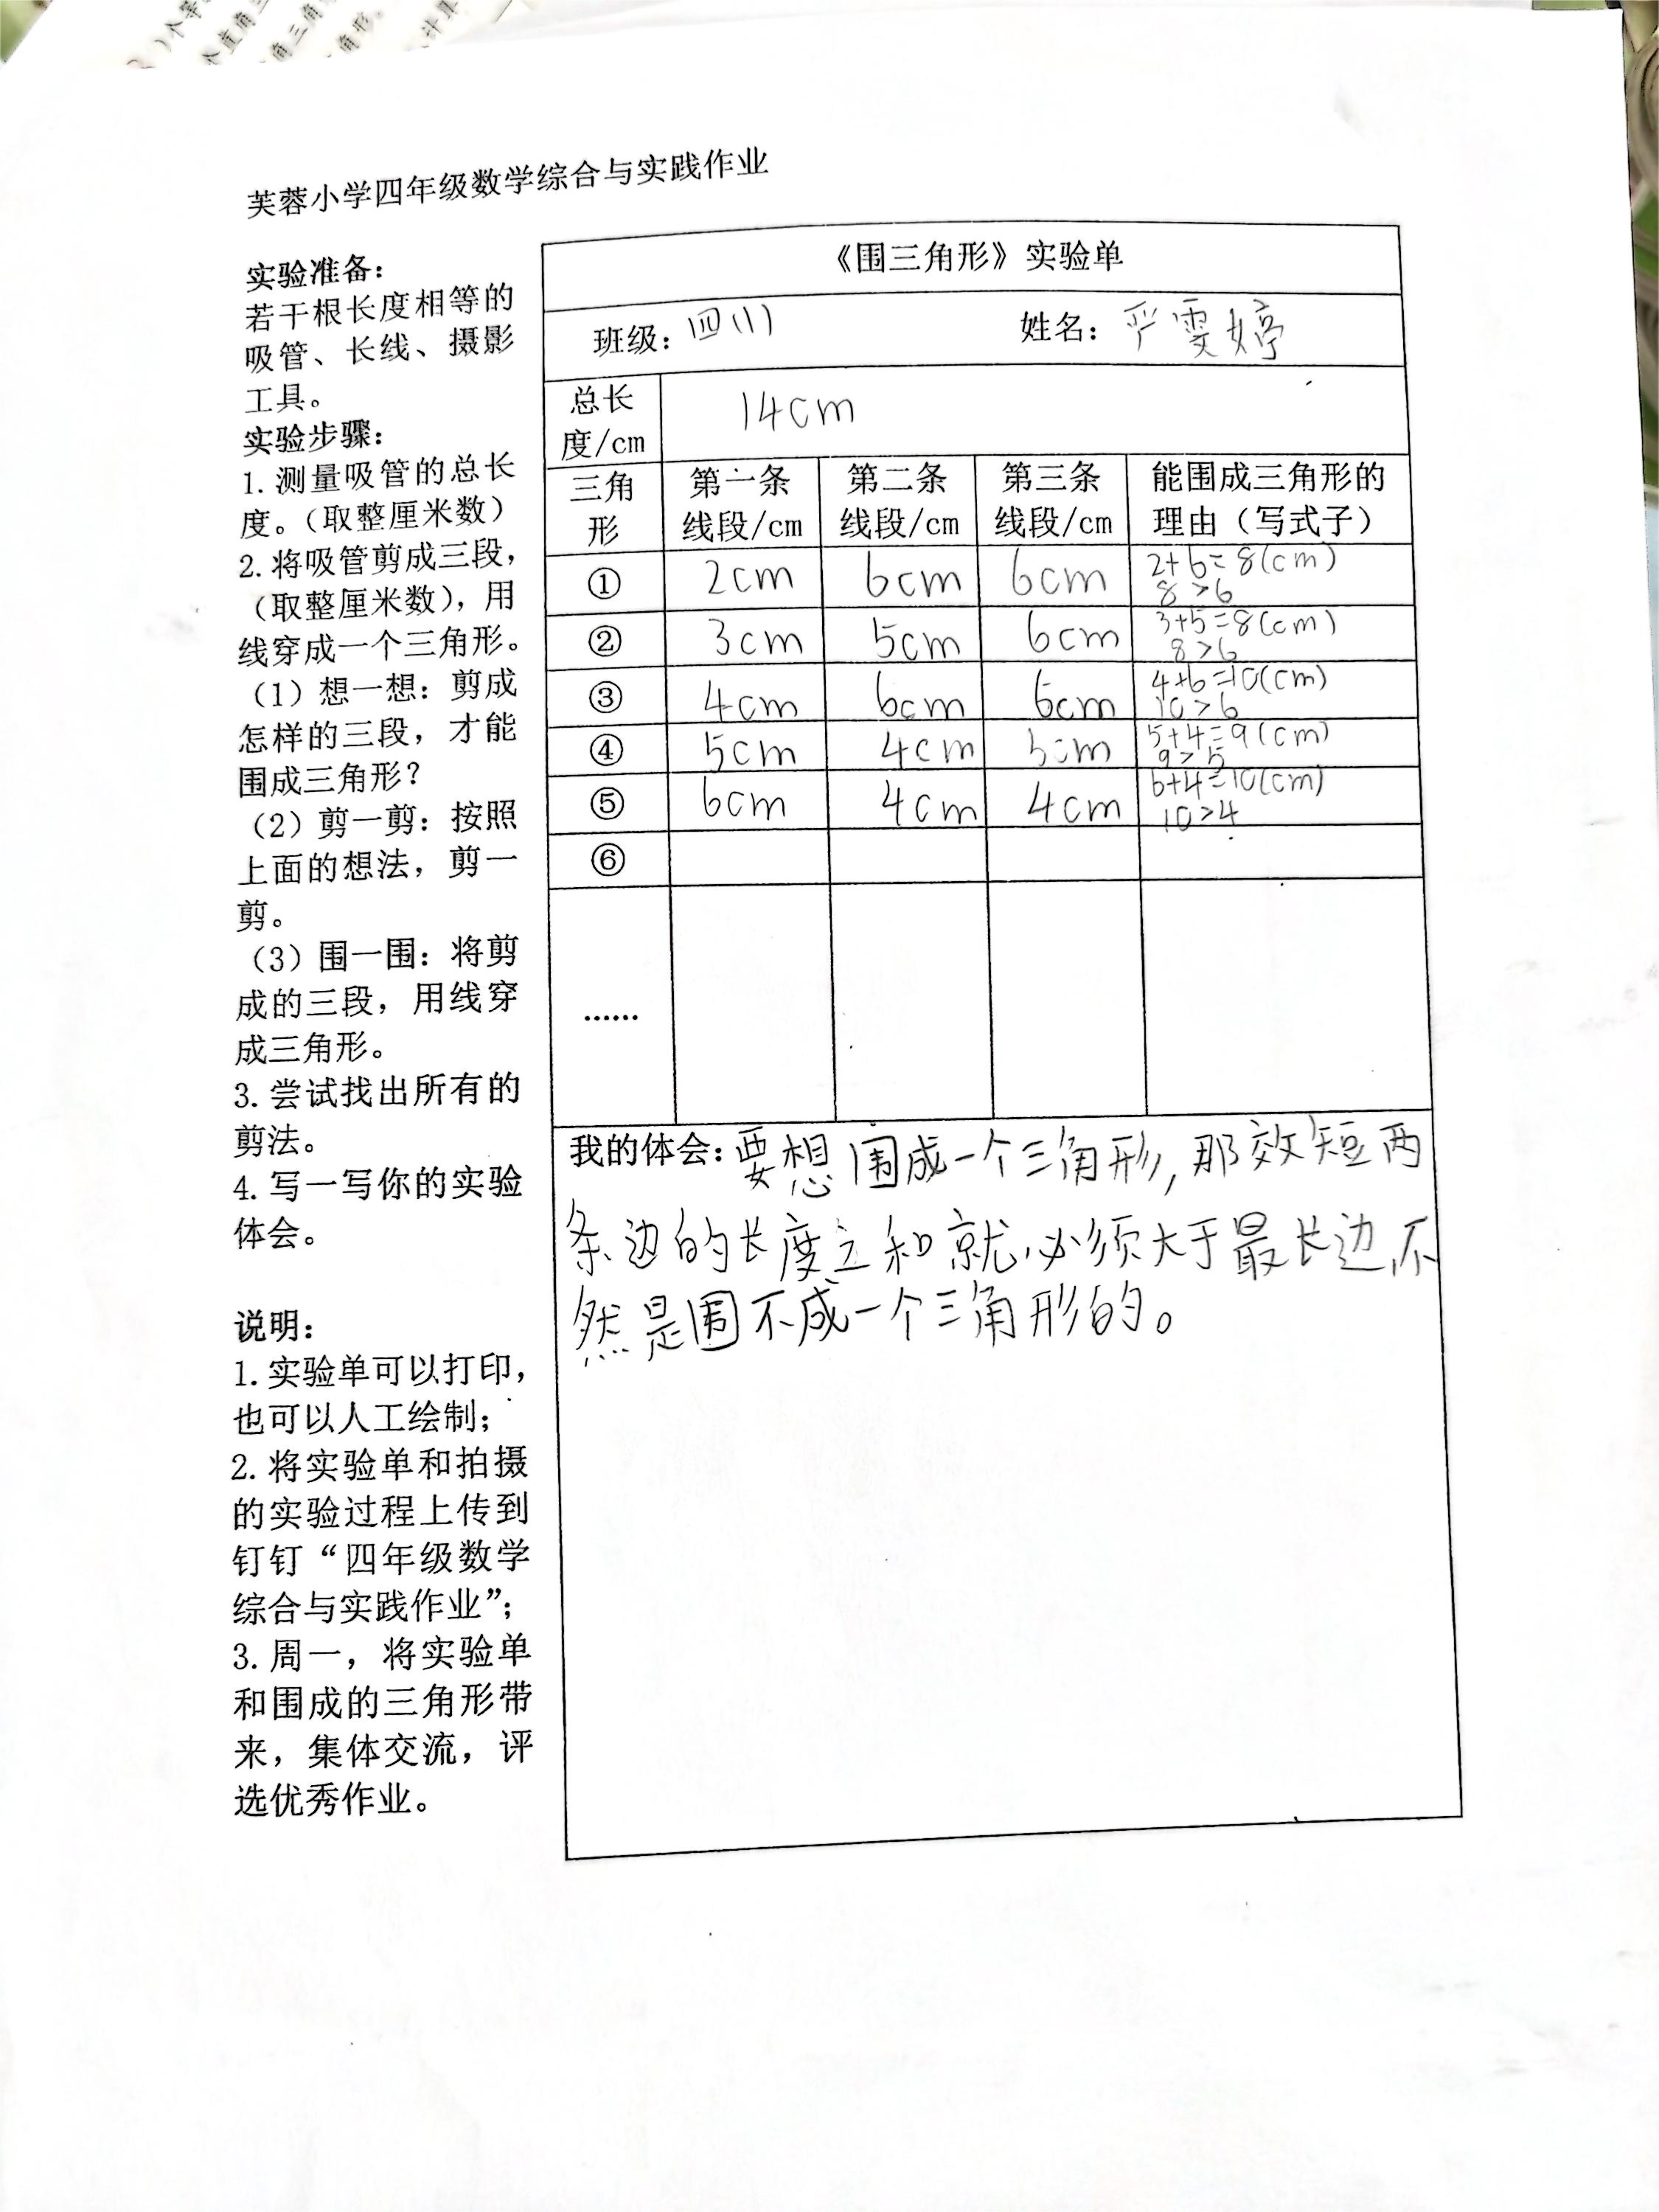 芙蓉小学四年级数学综合与实践作业
实验准备：
若干根长度相等的
吸管、长线、摄影
工具。
实验步骤：
1.测量吸管的总长
度。（取整厘米数）
2.将吸管剪成三段，
（取整厘米数），用
线穿成一个三角形。
（1）想一想：剪成
怎样的三段，才能
围成三角形？
（2）剪一剪：按照
上面的想法，剪一
剪。
（3）围一围：将剪
成的三段，用线穿
成三角形。
3.尝试找出所有的
剪法。
4.写一写你的实验
体会。
说明：
1.实验单可以打印，
也可以人工绘制；
2.将实验单和拍摄
的实验过程上传到
钉钉“四年级数学
综合与实践作业”；
3.周一，将实验单
和围成的三角形带
来，集体交流，评
选优秀作业。
《围三角形》实验单
班级：四(1) 姓名：严雯婷
总长度/cm 14cm
三角形 第一条线段/cm 第二条线段/cm 第三条线段/cm 能围成三角形的理由（写式子）
① 2cm 6cm 6cm 2+6=8(cm) 8>6
② 3cm 5cm 6cm 3+5=8(cm) 8>6
③ 4cm 6cm 6cm 4+6=10(cm) 10>6
④ 5cm 4cm 5cm 5+4=9(cm) 9>5
⑤ 6cm 4cm 4cm 6+4=10(cm) 10>4
⑥
……
我的体会：要想围成一个三角形，那效短两
条边的长度之和就必须大于最长边，不
然是围不成一个三角形的。